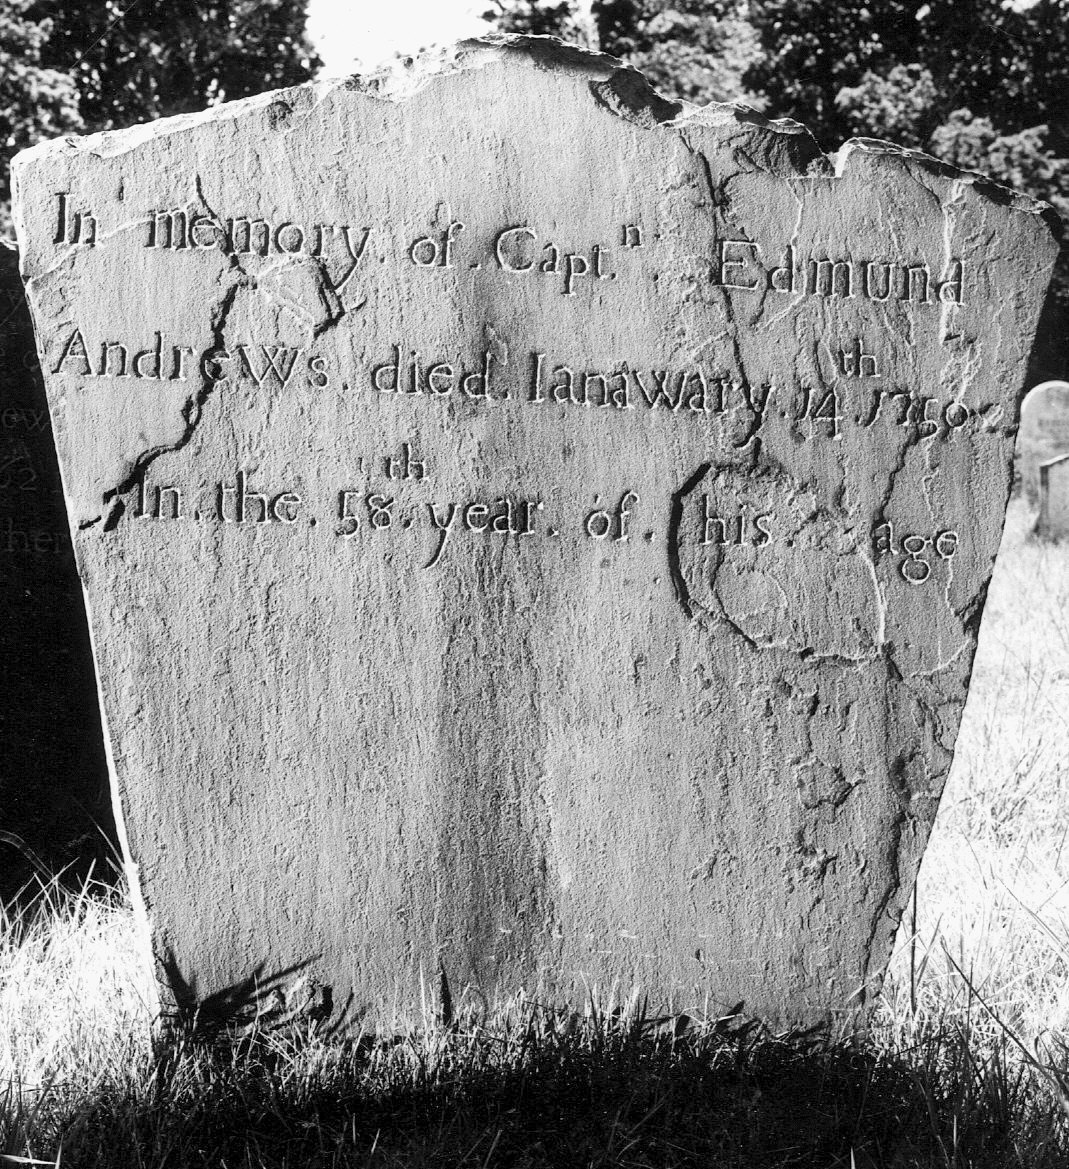 In memory. of. Capt.ⁿ. Edmund
Andrews. died. Ianawary. 14ᵗʰ 1750
In. the. 58ᵗʰ. year. of. his. age